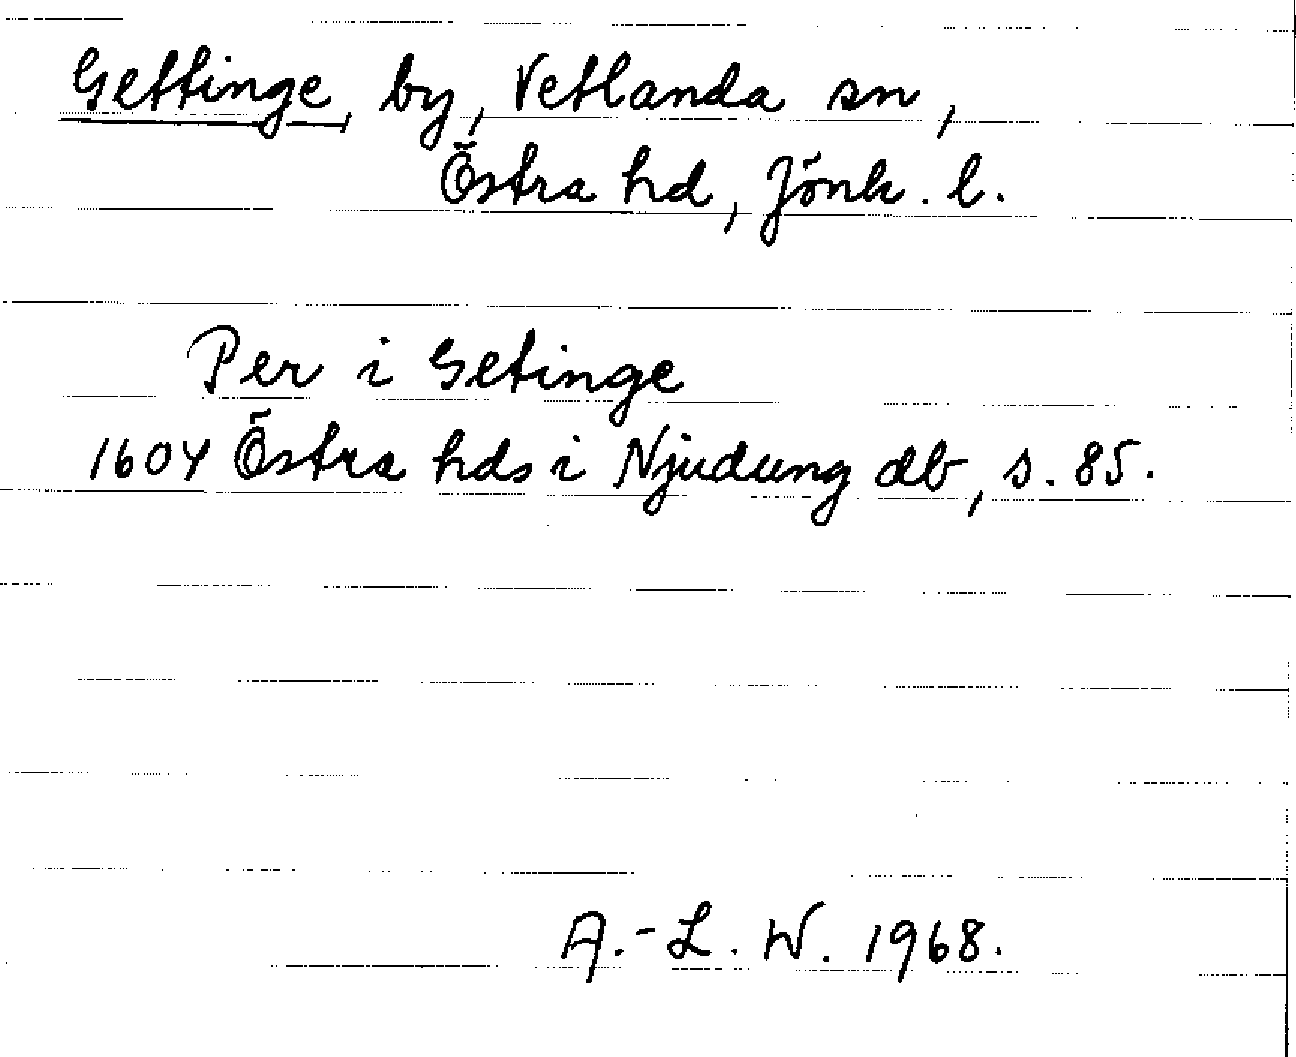 Gettinge, by, Vetlanda sn,
Östra hd, Jönk. l.
Per i Getinge
1604 Östra hds i Njudung db, s. 85.
A.-L. W. 1968.